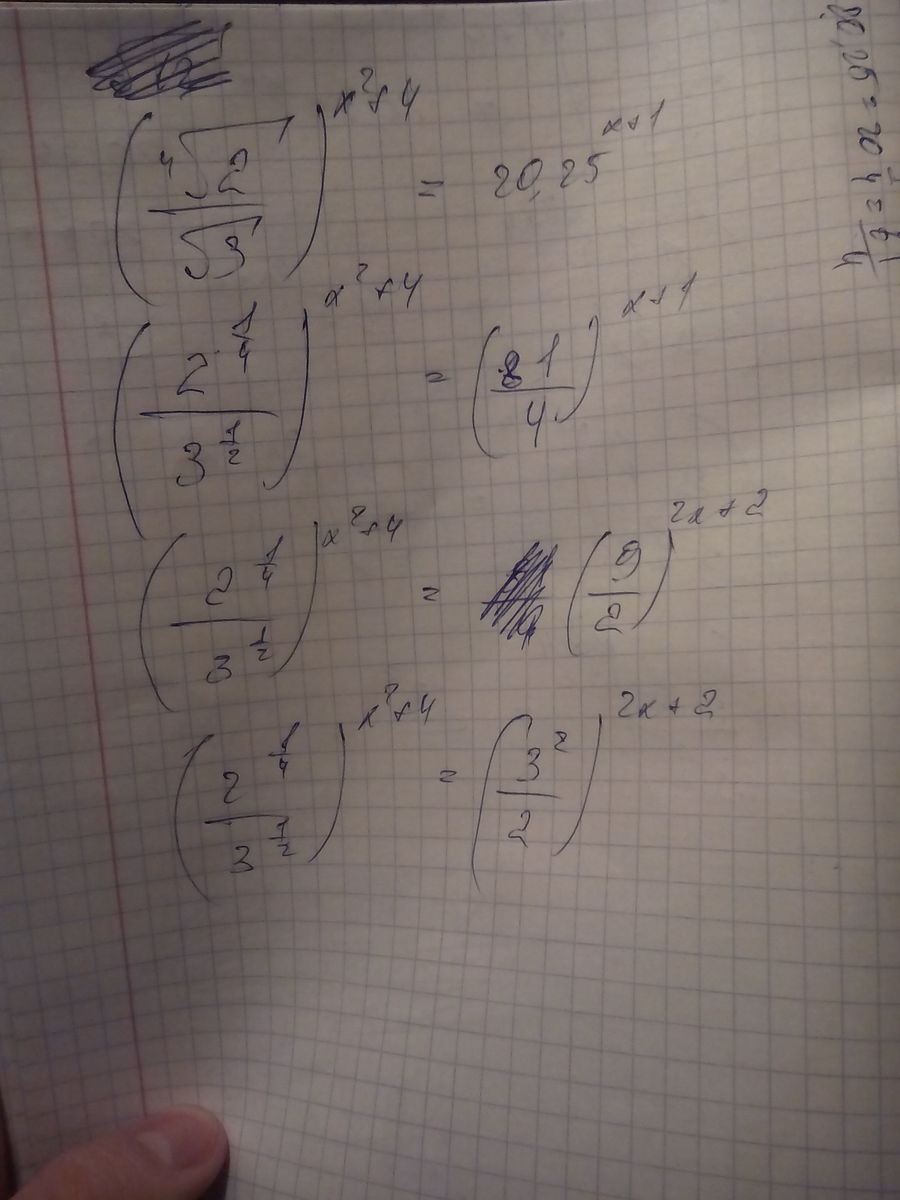 (⁴√2 / √3)^(x²+4) = 20,25^(x+1)
(2^(1/4) / 3^(1/2))^(x²+4) = (81/4)^(x+1)
(2^(1/4) / 3^(1/2))^(x²+4) = (9/2)^(2x+2)
(2^(1/4) / 3^(1/2))^(x²+4) = (3²/2)^(2x+2)